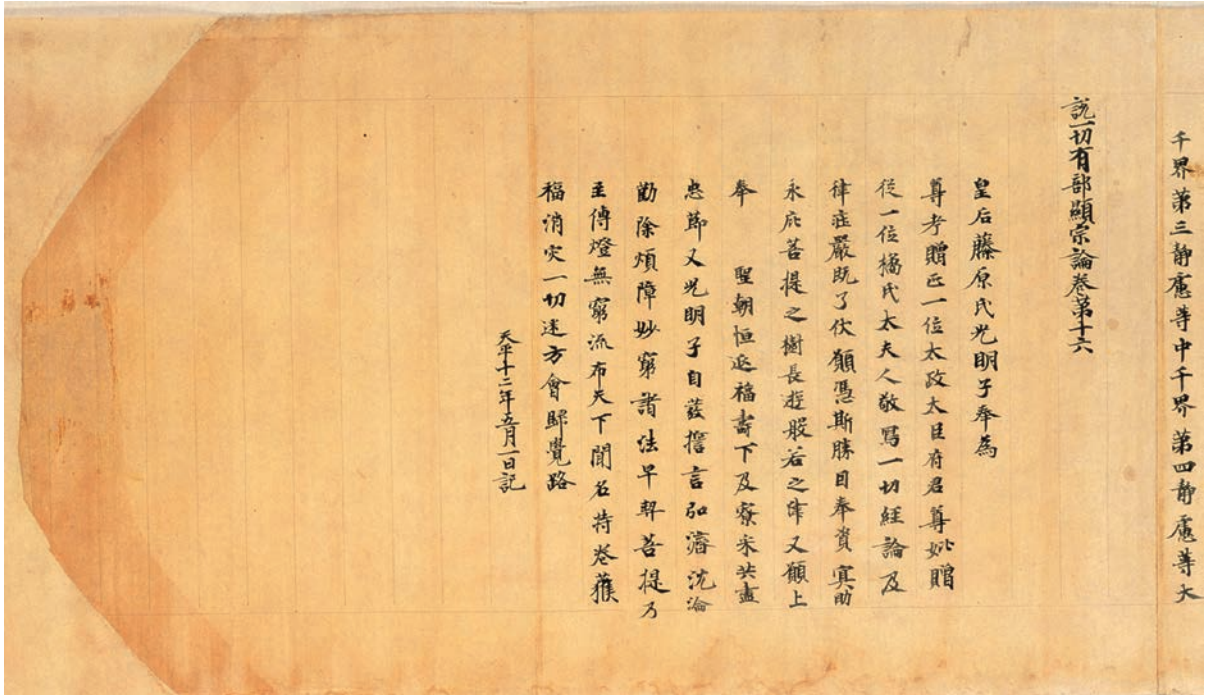 千界第三靜慮等中千界第四靜慮等大
說一切有部顯宗論卷第十六
皇后藤原氏光明子奉為
尊考贈正一位太政太臣府君尊妣贈
從一位橘氏太夫人敬寫一切經論及
律莊嚴既了伏願憑斯勝因奉資冥助
永庇菩提之樹長遊般若之津又願上
奉 聖朝恒延福壽下及寮采共盡
忠節又光明子自發擔言弘濟沈淪
勤除煩障妙窮諸法早契菩提乃
至傳燈無窮流布天下聞名持卷獲
福消災一切迷方會歸覺路
天平十二年五月一日記